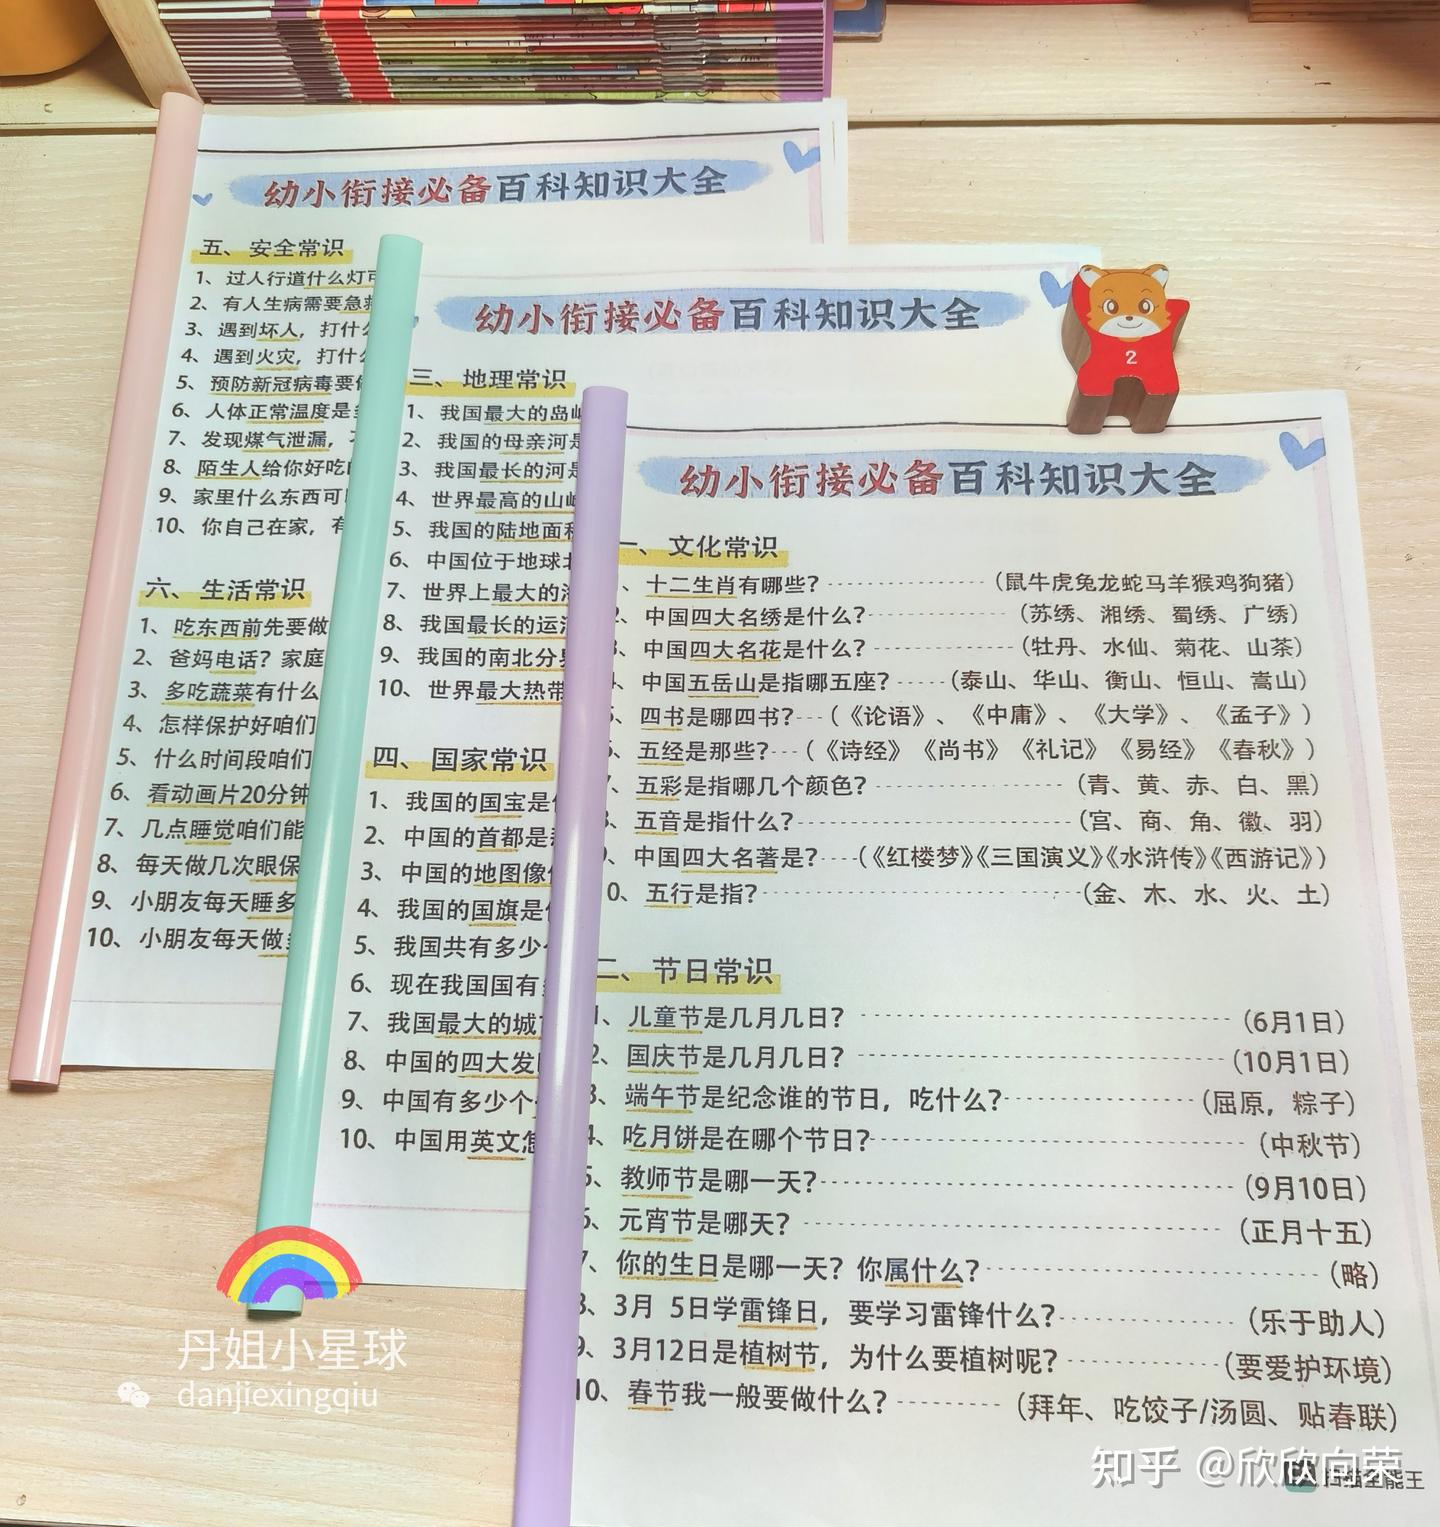 幼小衔接必备百科知识大全
五、安全常识
1、过人行道什么灯
2、有人生病需要急
3、遇到坏人，打什
4、遇到火灾，打什
5、预防新冠病毒要
6、人体正常温度是
7、发现煤气泄漏，
8、陌生人给你好吃
9、家里什么东西可
10、你自己在家，
六、生活常识
1、吃东西前先要做
2、爸妈电话？家庭
3、多吃蔬菜有什么
4、怎样保护好咱们
5、什么时间段咱们
6、看动画片20分钟
7、几点睡觉咱们能
8、每天做几次眼保
9、小朋友每天睡多
10、小朋友每天做
幼小衔接必备百科知识大全
三、地理常识
1、我国最大的岛
2、我国的母亲河
3、我国最长的河
4、世界最高的山
5、我国的陆地面
6、中国位于地球
7、世界上最大的
8、我国最长的运
9、我国的南北分
10、世界最大热带
四、国家常识
1、我国的国宝是
2、中国的首都是
3、中国的地图像
4、我国的国旗是
5、我国共有多少
6、现在我国国有
7、我国最大的城
8、中国的四大发
9、中国有多少个
10、中国用英文
幼小衔接必备百科知识大全
一、文化常识
、十二生肖有哪些？（鼠牛虎兔龙蛇马羊猴鸡狗猪）
、中国四大名绣是什么？（苏绣、湘绣、蜀绣、广绣）
、中国四大名花是什么？（牡丹、水仙、菊花、山茶）
、中国五岳山是指哪五座？（泰山、华山、衡山、恒山、嵩山）
、四书是哪四书？（《论语》、《中庸》、《大学》、《孟子》）
、五经是那些？（《诗经》《尚书》《礼记》《易经》《春秋》）
、五彩是指哪几个颜色？（青、黄、赤、白、黑）
、五音是指什么？（宫、商、角、徽、羽）
、中国四大名著是？（《红楼梦》《三国演义》《水浒传》《西游记》）
0、五行是指？（金、木、水、火、土）
二、节日常识
、儿童节是几月几日？（6月1日）
2、国庆节是几月几日？（10月1日）
3、端午节是纪念谁的节日，吃什么？（屈原，粽子）
4、吃月饼是在哪个节日？（中秋节）
5、教师节是哪一天？（9月10日）
、元宵节是哪天？（正月十五）
7、你的生日是哪一天？你属什么？（略）
8、3月 5日学雷锋日，要学习雷锋什么？（乐于助人）
9、3月12日是植树节，为什么要植树呢？（要爱护环境）
10、春节我一般要做什么？（拜年、吃饺子/汤圆、贴春联）
2
丹姐小星球
danjiexingqiu
知乎 @欣欣向荣
扫描全能王